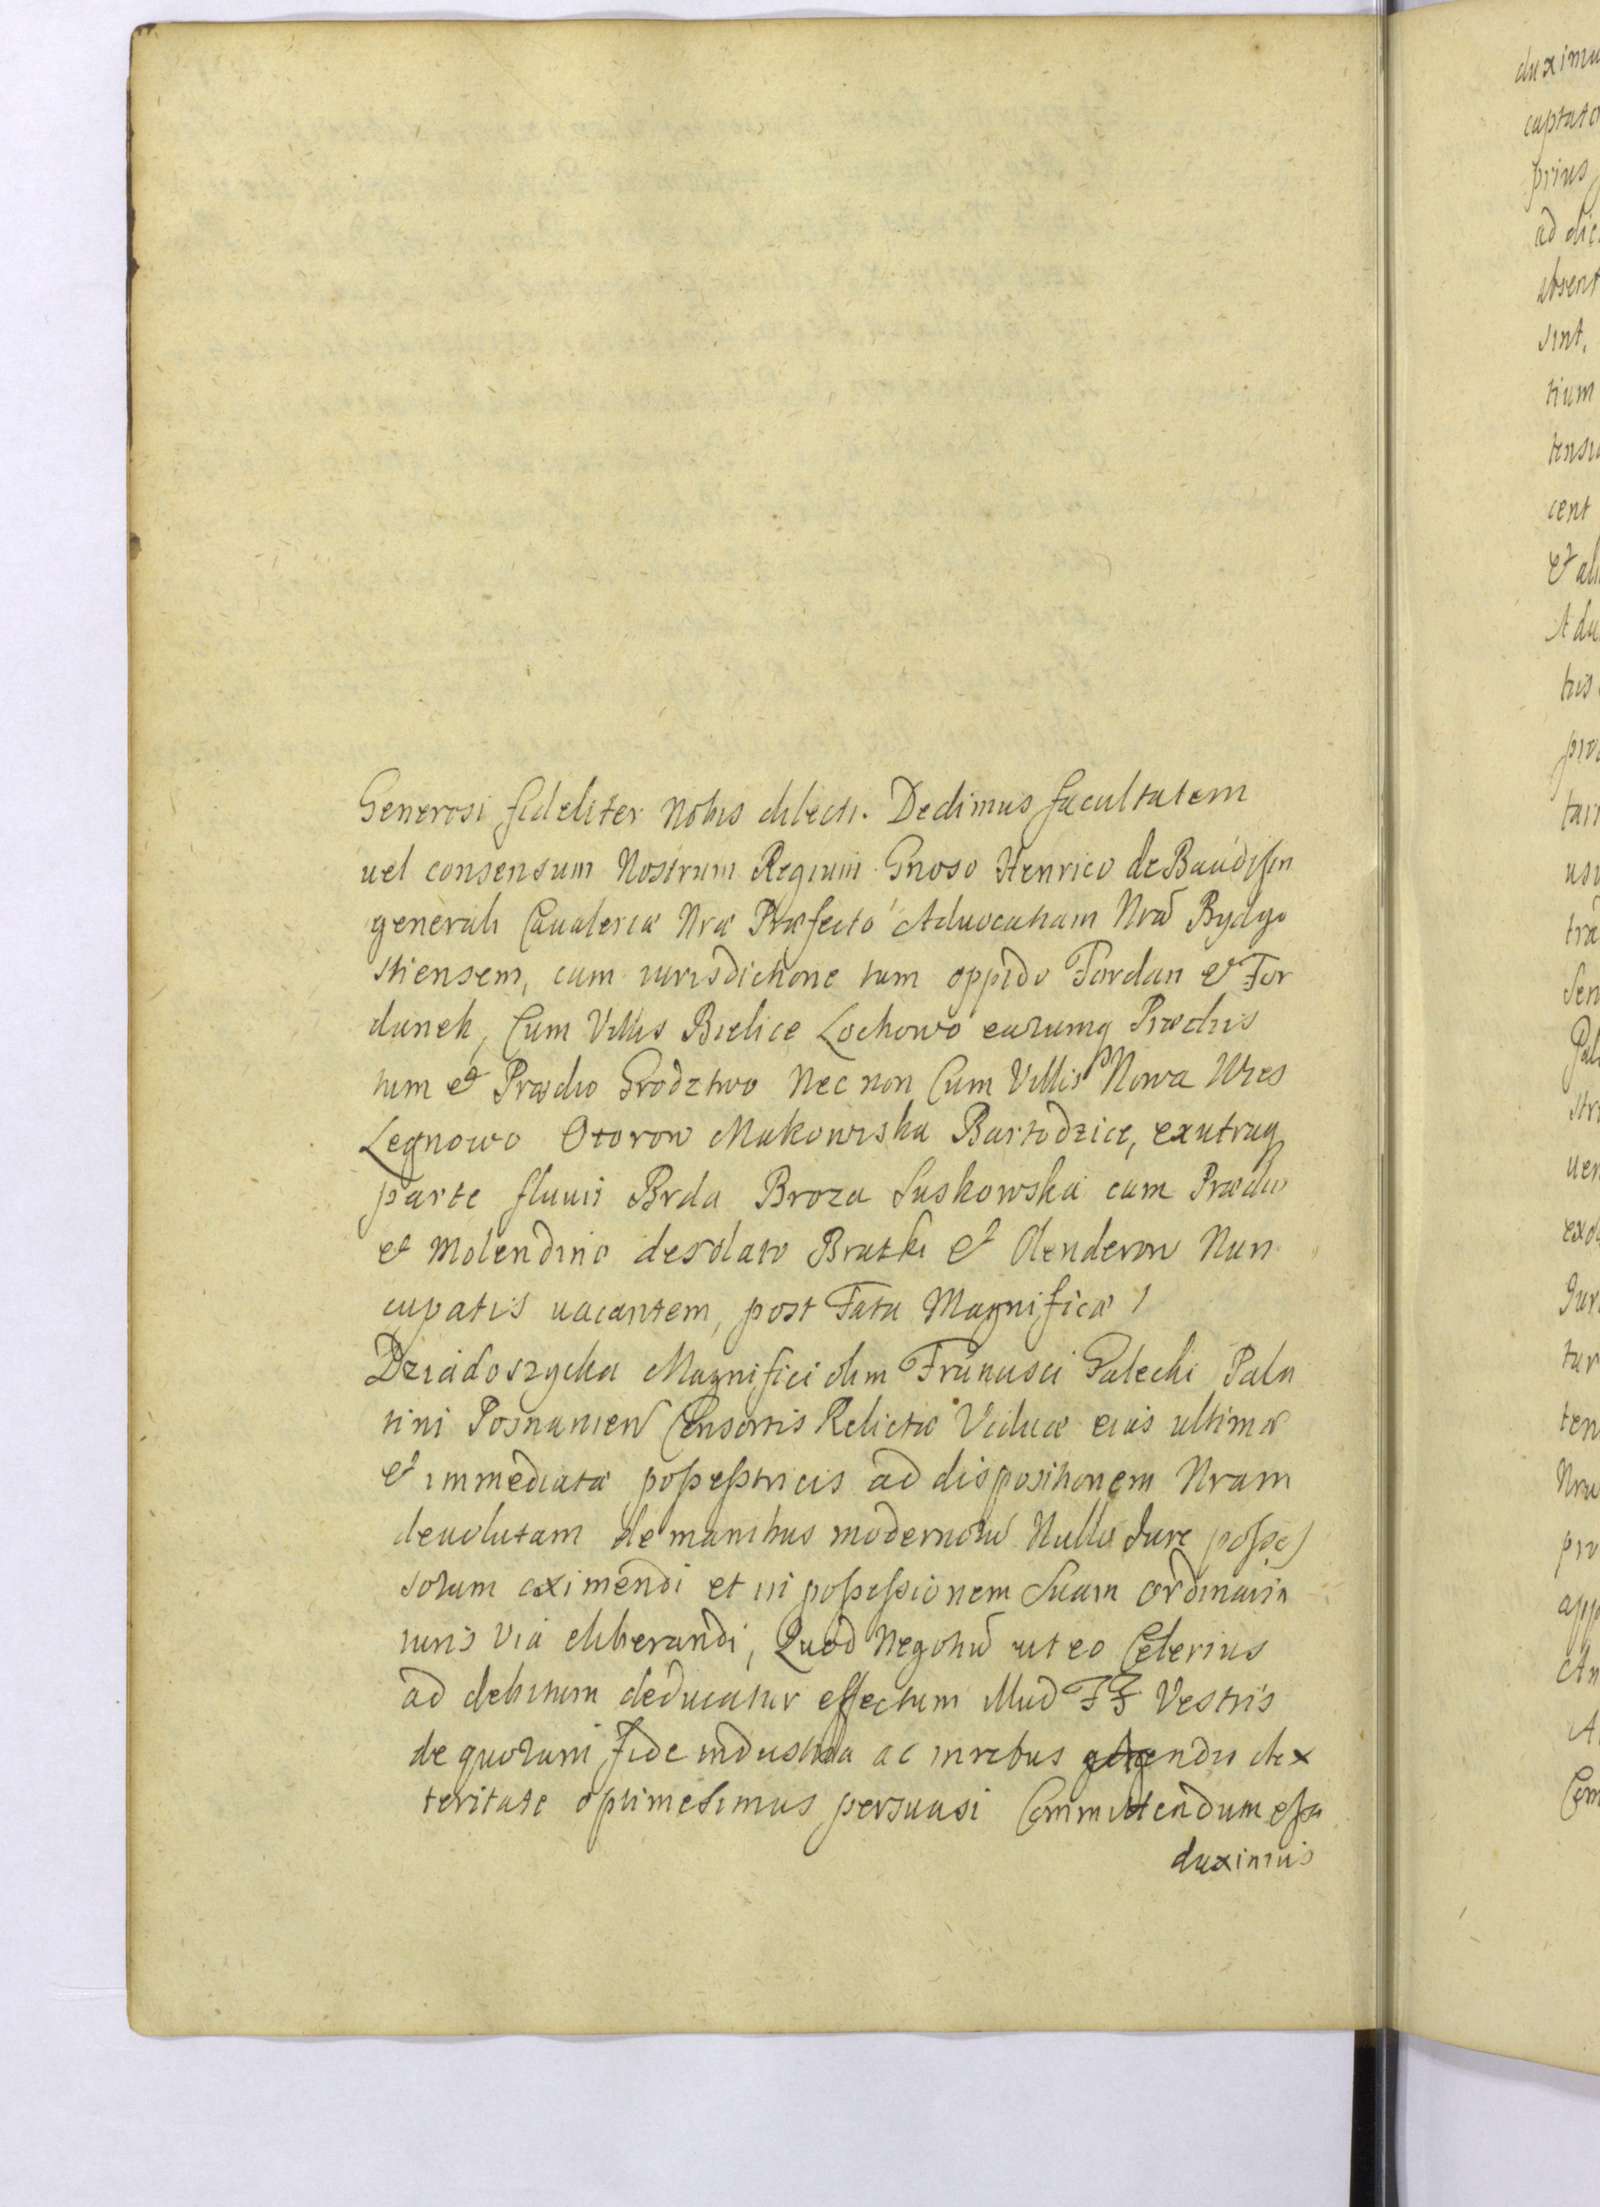 Generosi fideliter Nobis dilecti. Dedimus facultatem
uel consensum Nostrum Regium Gnoso Henrico de Baudißin
generali Caualeriæ Nræ Præfecto Aduocatiam Nrã Bydgo
stiensem, cum iurisdictione tum oppido Fordan et For
danek, Cum Villis Bielice Lochowo earumq Prædiis
tum et Prædio Grodztwo Nec non Cum Villis Nowa Wies
Legnowo Otorow Makowiska Bartodzice, ex utraq
parte fluuii Brda Broza Suskowska cum Prædiis
et Molendino desolato Bratki et Olenderow Nun
cupatis uacantem, post Fata Magnificæ
Dziadoszycka Magnifici olim Frãncisci Galecki Pala
tini Posnanien Consortis Relictæ Viduæ eius ultimæ
et immediatæ poßeßtricis ad dispositionem Nram
deuolutam de manibus modernorũ Nullo Jure poßeß
sorum eximendi et in poßeßionem Suam ordinaria
iuris via eliberandi, Quod Negotiũ ut eo Celerius
ad debitum deducatur effectum illud FF Vestris
de quorum fide industria ac in rebus agendis dex
teritate optime simus persuasi Committendum eße
duximus
duximu
captato
prius
ad dic
absent
sint,
tium
tensi
cent
et ali
Adu
tus
pro
tam
usu
trã
Sen
Pal
str
uen
exd
Jur
tur
ten
Nru
pro
app
An
A
Com